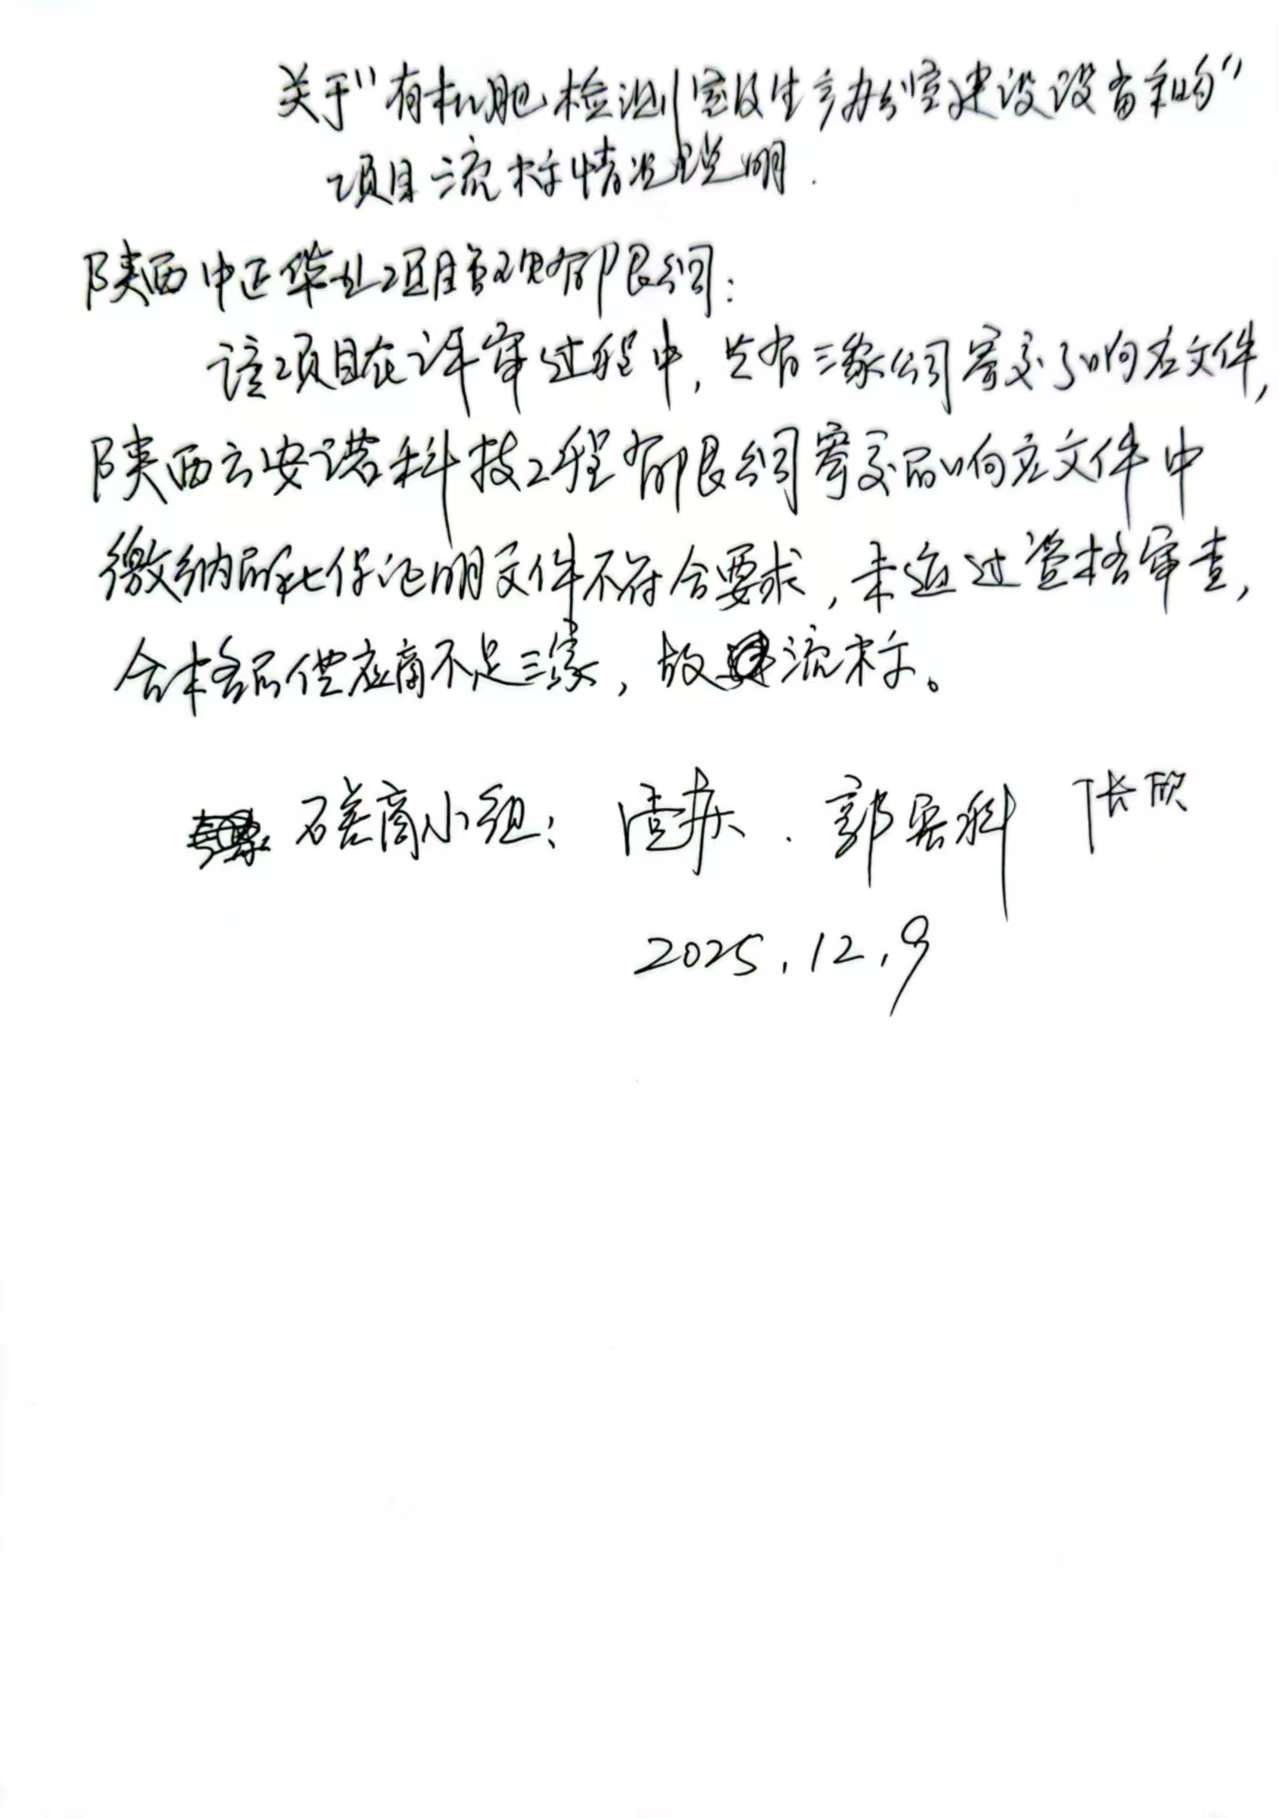 关于"有机肥检测室及生产办公室建设设备采购"
项目流标情况说明.
陕西中正华业项目管理有限公司:
该项目在评审过程中,共有三家公司寄交了响应文件,
陕西云安诺科技工程有限公司寄交的响应文件中
缴纳的社保证明文件不符合要求,未通过资格审查,
合格的供应商不足三家,故流标。
磋商小组: 郭 科 张欣
2025.12.9